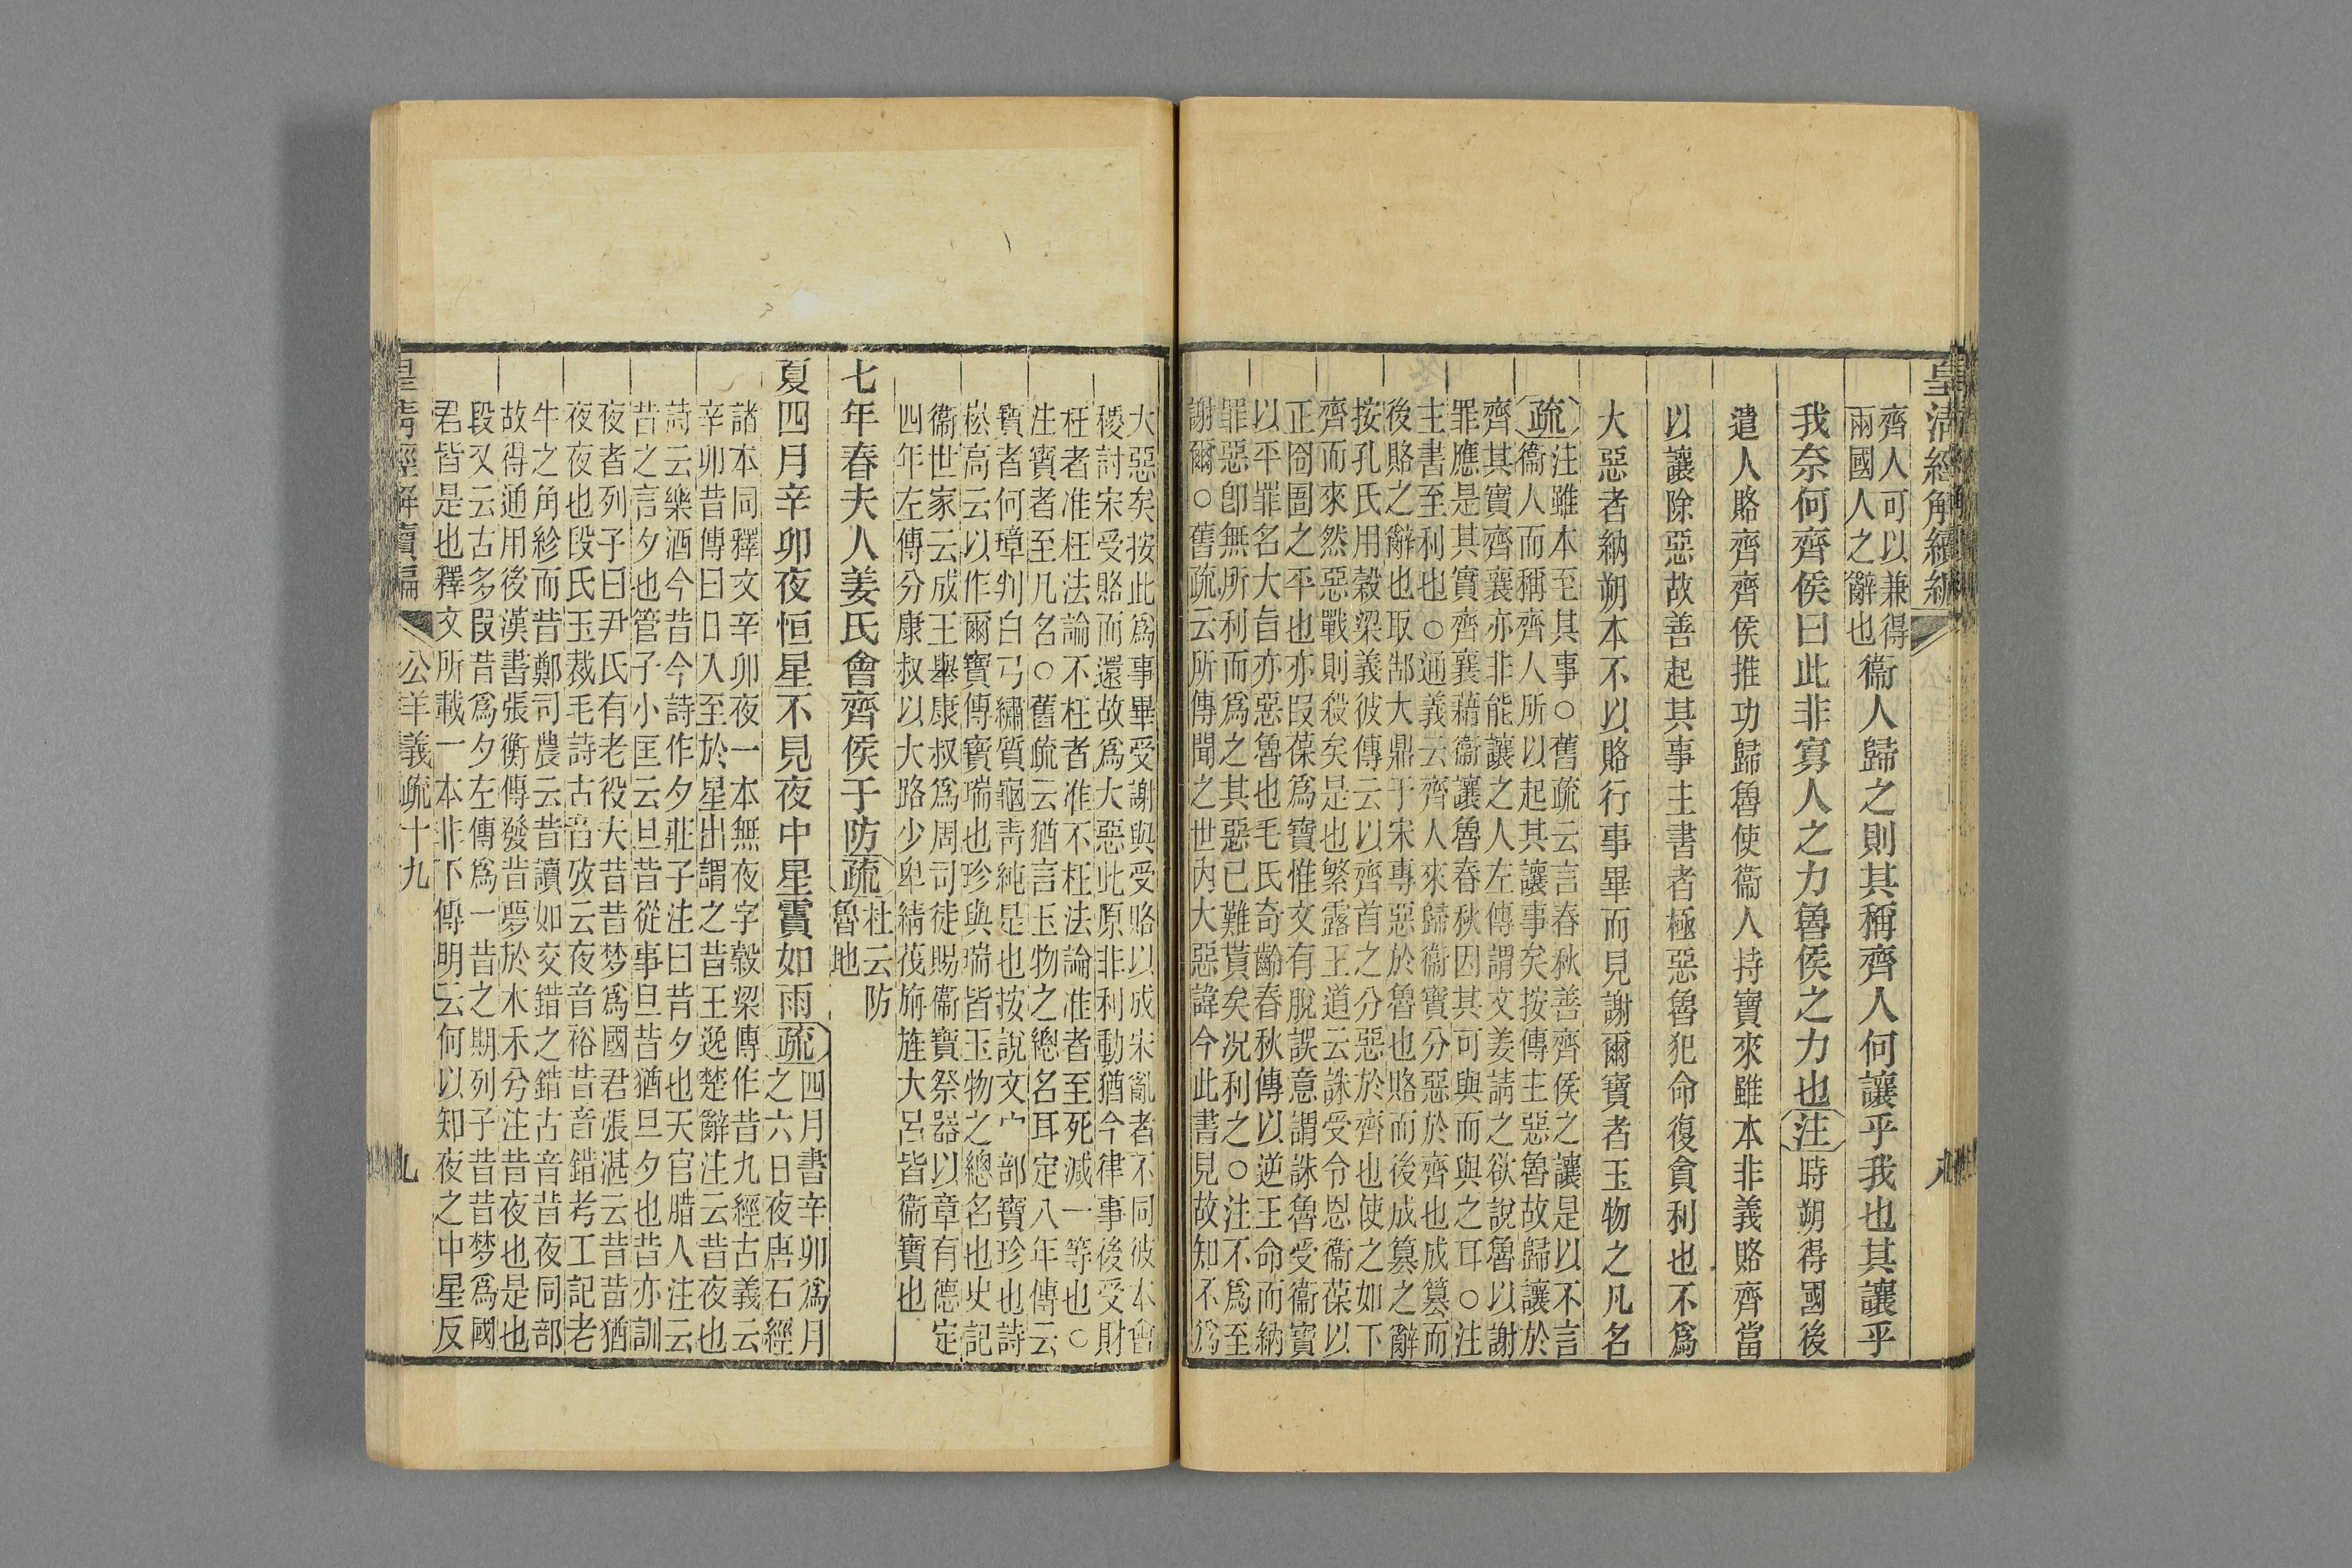 皇清經解續編
齊人可以兼得
兩國人之辭也
衞人歸之則其稱齊人何讓乎我也其讓乎
我奈何齊侯曰此非寡人之力魯侯之力也注時朔得國後
遣人賂齊齊侯推功歸魯使衞人持寶來雖本非義賂齊當
以讓除惡故善起其事主書者極惡魯犯命復貪利也不爲
大惡者納朔本不以賂行事畢而見謝爾寶者玉物之凡名
疏
注雖本至其事○舊疏云言春秋善齊侯之讓是以不言
衞人而稱齊人所以起其讓事矣按傳主惡魯故歸讓於
齊其實齊襄亦非能讓之人左傳謂文姜請之欲說魯以謝
罪應是其實齊襄藉衞讓魯春秋因其可與而與之耳○注
主書至利也○通義云齊人來歸衞寶分惡於齊也成篡而
後賂之辭也取郜大鼎于宋專惡於魯也賂而後成篡之辭
按孔氏用穀梁義彼傳云以齊首之分惡於齊也使之如下
齊而來然惡戰則殺矣是也繁露王道云誅受令恩衞葆以
正囹圄之平也亦叚葆爲寶惟文有脫誤意謂誅魯受衞寶
以平罪名大旨亦惡魯也毛氏奇齡春秋傳以逆王命而納
罪惡卽無所利而爲之其惡已難貰矣况利之○注不爲至
謝爾○舊疏云所傳聞之世內大惡諱今此書見故知不爲
大惡矣按此爲事畢受謝與受賂以成宋亂者不同彼本會
稷討宋受賂而還故爲大惡此原非利動猶今律事後受財
枉者准枉法論不枉者准不枉法論准者至死減一等也○
注寶者至凡名○舊疏云猶言玉物之總名耳定八年傳云
寶者何璋判白弓繡質龜靑純是也按說文宀部寶珍也詩
崧高云以作爾寶傳寶瑞也珍與瑞皆玉物之總名也史記
衞世家云成王舉康叔爲周司徒賜衞寶祭器以章有德定
四年左傳分康叔以大路少帛綪茷旃旌大呂皆衞寶也
七年春夫人姜氏會齊侯于防疏
杜云防
魯地
夏四月辛卯夜恒星不見夜中星霣如雨疏
四月書辛卯爲月
之六日夜唐石經
諸本同釋文辛卯夜一本無夜字穀梁傳作昔九經古義云
辛卯昔傳曰日入至於星出謂之昔王逸楚辭注云昔夜也
詩云樂酒今昔今詩作夕莊子注曰昔夕也天官腊人注云
昔之言夕也管子小匡云旦昔從事旦昔猶旦夕也昔亦訓
夜者列子曰尹氏有老役夫昔昔梦爲國君張湛云昔昔猶
夜夜也段氏玉裁毛詩古音攷云夜音裕昔音錯考工記老
牛之角紾而昔鄭司農云昔讀如交錯之錯古音昔夜同部
故得通用後漢書張衡傳發昔夢於木禾分注昔夜也是也
段又云古多叚昔爲夕左傳爲一昔之期列子昔昔梦爲國
君皆是也釋文所載一本非下傳明云何以知夜之中星反
皇清經解續編
公羊義疏十九
九